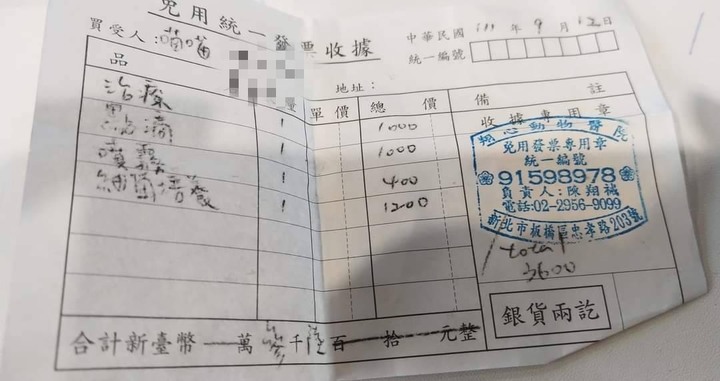 免用統一發票收據
中華民國 111 年 9 月 12 日
買受人：喵喵
統一編號
地址：
品 量 單價 總價 備註
治療 1 1000
點滴 1 1000
噴霧 1 400
細菌培養 1 1200
收據專用章
翔心動物醫院
免用發票專用章
統一編號
91598978
負責人：陳翔
電話:02-2956-9099
新北市板橋區忠孝路203號
total
3600
銀貨兩訖
合計新臺幣 萬 參千陸百 拾 元整